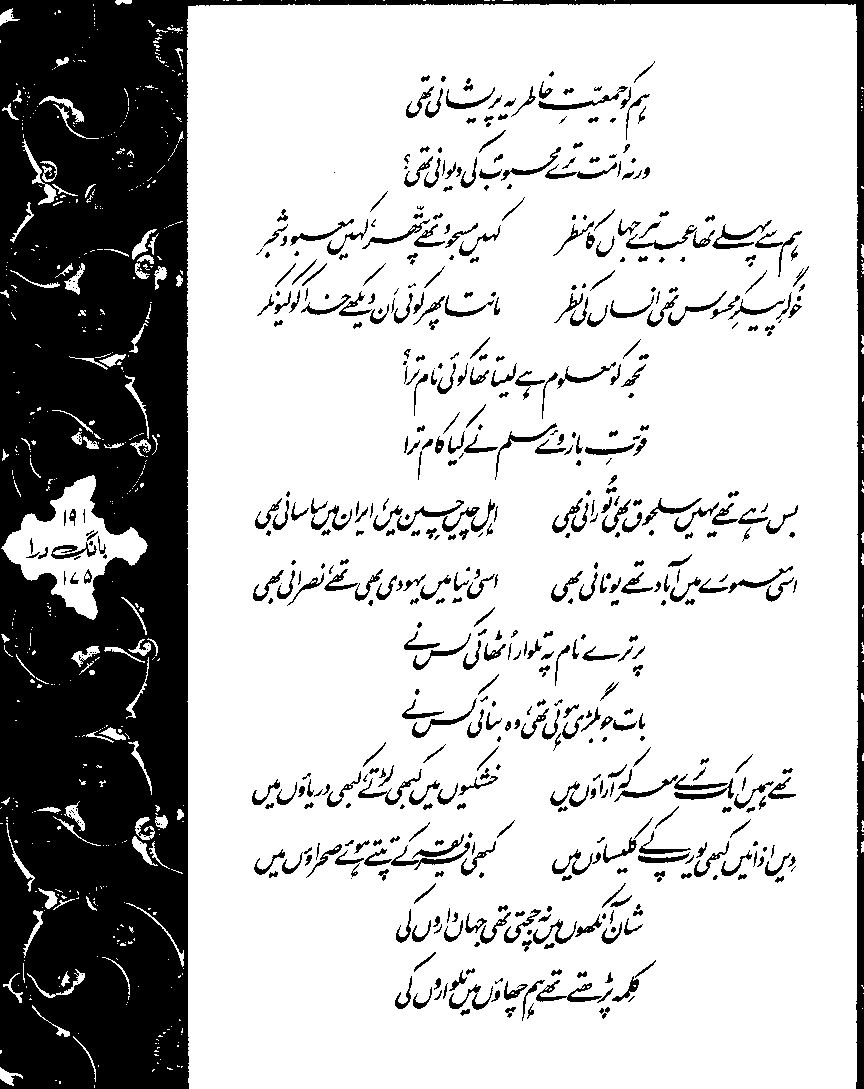 ہم کو جمعیّتِ خاطر یہ پریشانی تھی
ورنہ اُمّت ترے محبوبؐ کی دیوانی تھی؟
ہم سے پہلے تھا عجب تیرے جہاں کا منظر کہیں مسجود تھے پتھّر، کہیں معبود شجر
خُوگرِ پیکرِ محسوس تھی انساں کی نظر مانتا پھر کوئی اَن دیکھے خدا کو کیونکر
تجھ کو معلوم ہے لیتا تھا کوئی نام ترا؟
قوّتِ بازوئے مسلم نے کیا کام ترا
بس رہے تھے یہیں سلجوق بھی، تُورانی بھی اہلِ چیں چین میں، ایران میں ساسانی بھی
اسی معمورے میں آباد تھے یونانی بھی اسی دنیا میں یہودی بھی تھے، نصرانی بھی
پر ترے نام پہ تلوار اُٹھائی کس نے
بات جو بگڑی ہوئی تھی، وہ بنائی کس نے
تھے ہمیں ایک ترے معرکہ آراؤں میں خشکیوں میں کبھی لڑتے کبھی دریاؤں میں
دِیں اذانیں کبھی یورپ کے کلیساؤں میں کبھی افریقہ کے تپتے ہوئے صحراؤں میں
شان آنکھوں میں نہ جچتی تھی جہاں داروں کی
کلِمہ پڑھتے تھے ہم چھاؤں میں تلواروں کی
۱۹۱
بانگ درا
۱۷۵